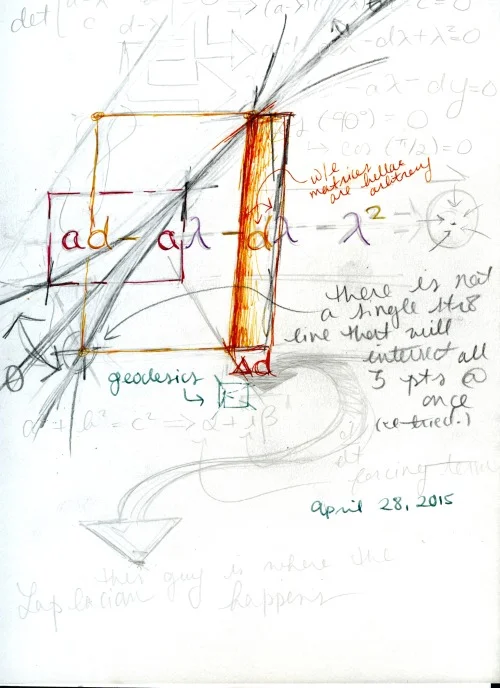 det
c d-λ
c = 0
-dλ+λ²=0
-aλ - dγ=0
(90°) = 0
→ cos (π/2) = 0
w/e
matrices
are hellaa
arbitrary
ad - aλ - dλ - λ² =
there is not
a single str8
line that will
intersect all
3 pts @
once
(we tried.)
θ
Δd
geodesics
↳
a² + b² = c² ⇒ α + iβ
d
dt
forcing term
April 28, 2015
this guy is where the
Laplacian happens